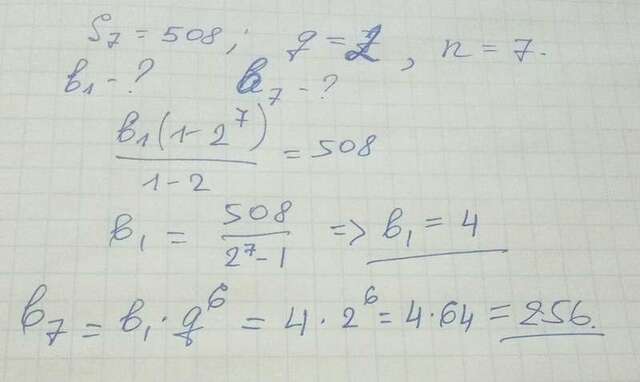 S₇ = 508; q = 2, n = 7.
b₁ - ? b₇ - ?
b₁(1-2⁷)/(1-2) = 508
b₁ = 508/(2⁷-1) => b₁ = 4
b₇ = b₁ · q⁶ = 4 · 2⁶ = 4 · 64 = 256.